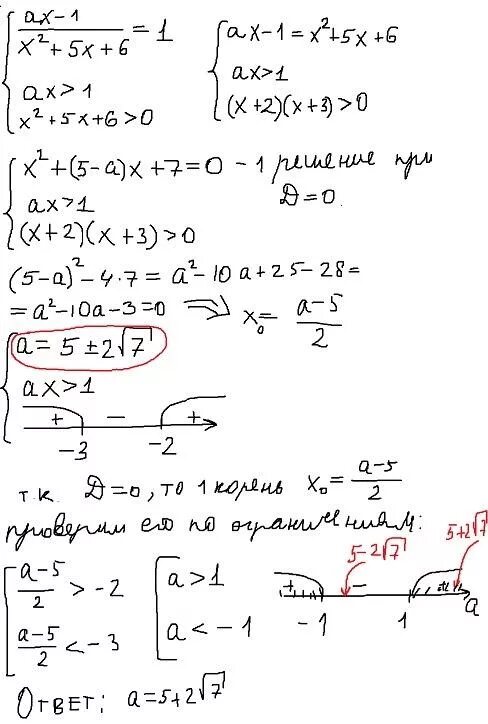 (ax-1)/(x²+5x+6) = 1
ax > 1
x²+5x+6 > 0
ax-1 = x²+5x+6
ax>1
(x+2)(x+3) > 0
x²+(5-a)x+7=0 - 1 решение при Д=0.
ax>1
(x+2)(x+3)>0
(5-a)²-4·7 = a²-10a+25-28=
=a²-10a-3=0 ⇒ x₀= (a-5)/2
a= 5±2√7
ax>1
+ - +
-3 -2
т.к. Д=0, то 1 корень x₀= (a-5)/2
проверим его по ограничениям:
(a-5)/2 > -2
(a-5)/2 < -3
a>1
a< -1
5-2√7 5+2√7
+ -
-1 1 a
Ответ: a=5+2√7